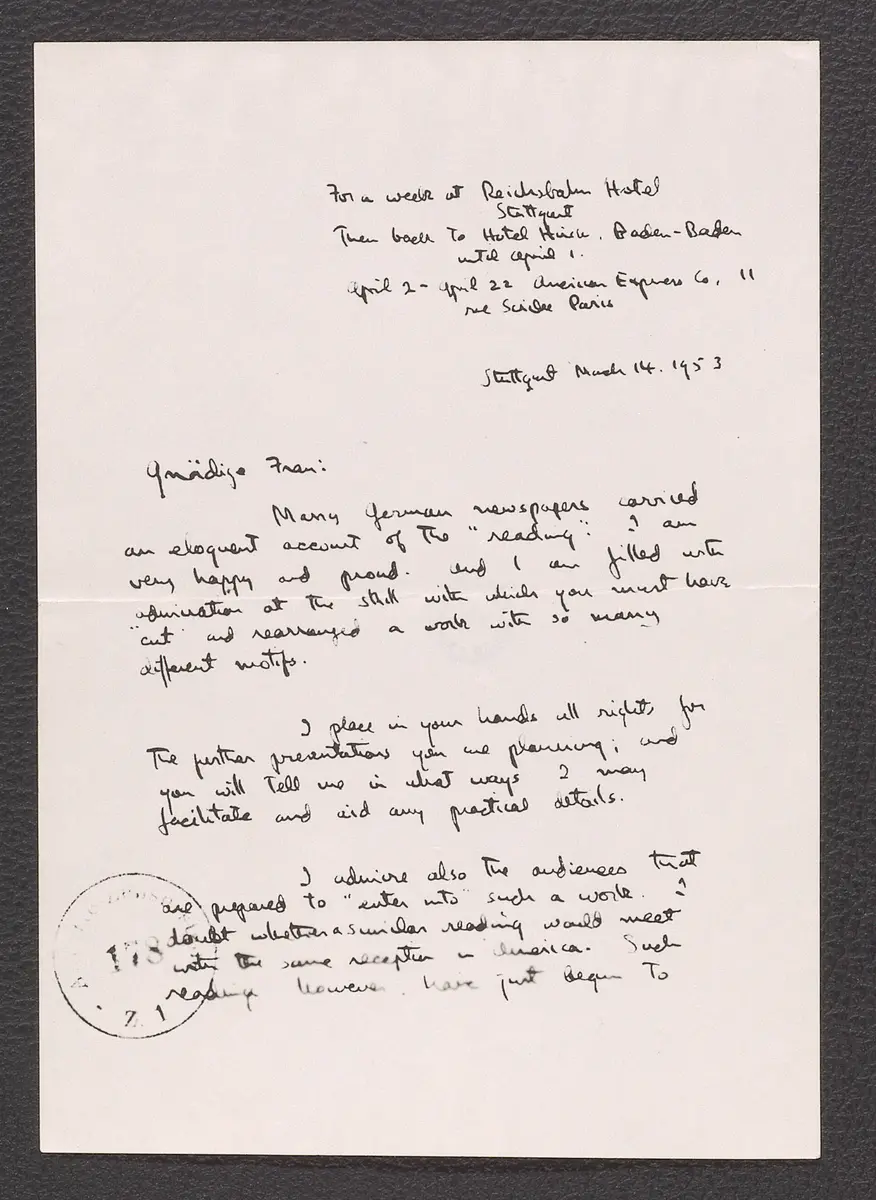 For a week at Reichsbahn Hotel
Stuttgart
Then back to Hotel Hirsch, Baden-Baden
until April 1.
April 2 - April 22 American Express Co, 11
rue Scribe Paris
Stuttgart March 14. 1953
Gnädige Frau:
Many German newspapers carried
an eloquent account of the "reading". I am
very happy and proud. And I am filled with
admiration at the skill with which you must have
"cut" and rearranged a work with so many
different motifs.
I place in your hands all rights for
the further presentations you are planning; and
you will tell me in what ways I may
facilitate and aid any practical details.
I admire also the audiences that
are prepared to "enter into" such a work. I
doubt whether a similar reading would meet
with the same reception in America. Such
readings however, have just begun to
178
Z 1